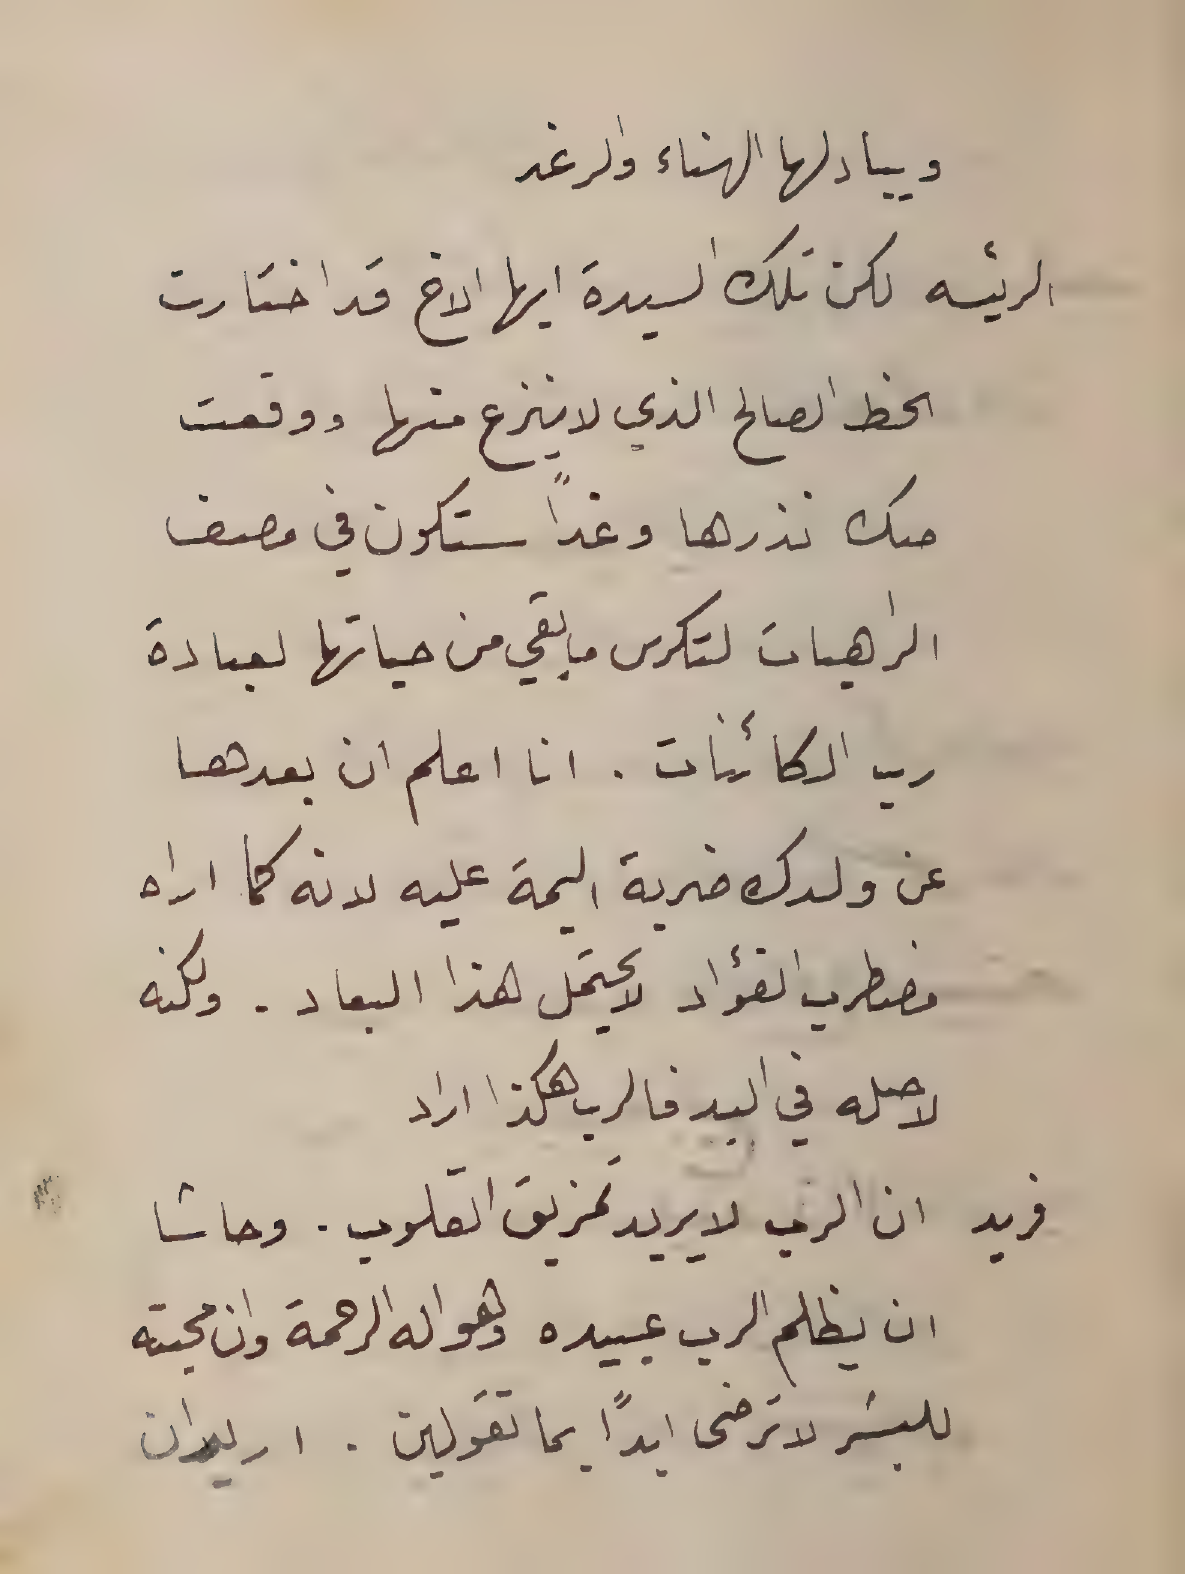 ويبادلها الهناء والرغد
الرئيسه لكن تلك السيدة ايها الاخ قد اختارت
الحظ الصالح الذي لا ينزع منها ووقعت
صك نذرها وغداً ستكون في مصف
الراهبات لتكرس ما بقي من حياتها لعبادة
رب الكائنات . انا اعلم ان بعدها
عن ولدك ضربة اليمة عليه لانه كما اراه
مضطرب الفؤاد لا يحتمل هذا البعاد . ولكنه
لا حيله في اليد فالرب هكذا اراد
فريد ان الرب لا يريد تمزيق القلوب . وحاشا
ان يظلم الرب عبيده وهو اله الرحمة وان محبته
للبشر لا ترضى ابداً بما تقولين . اريد ان